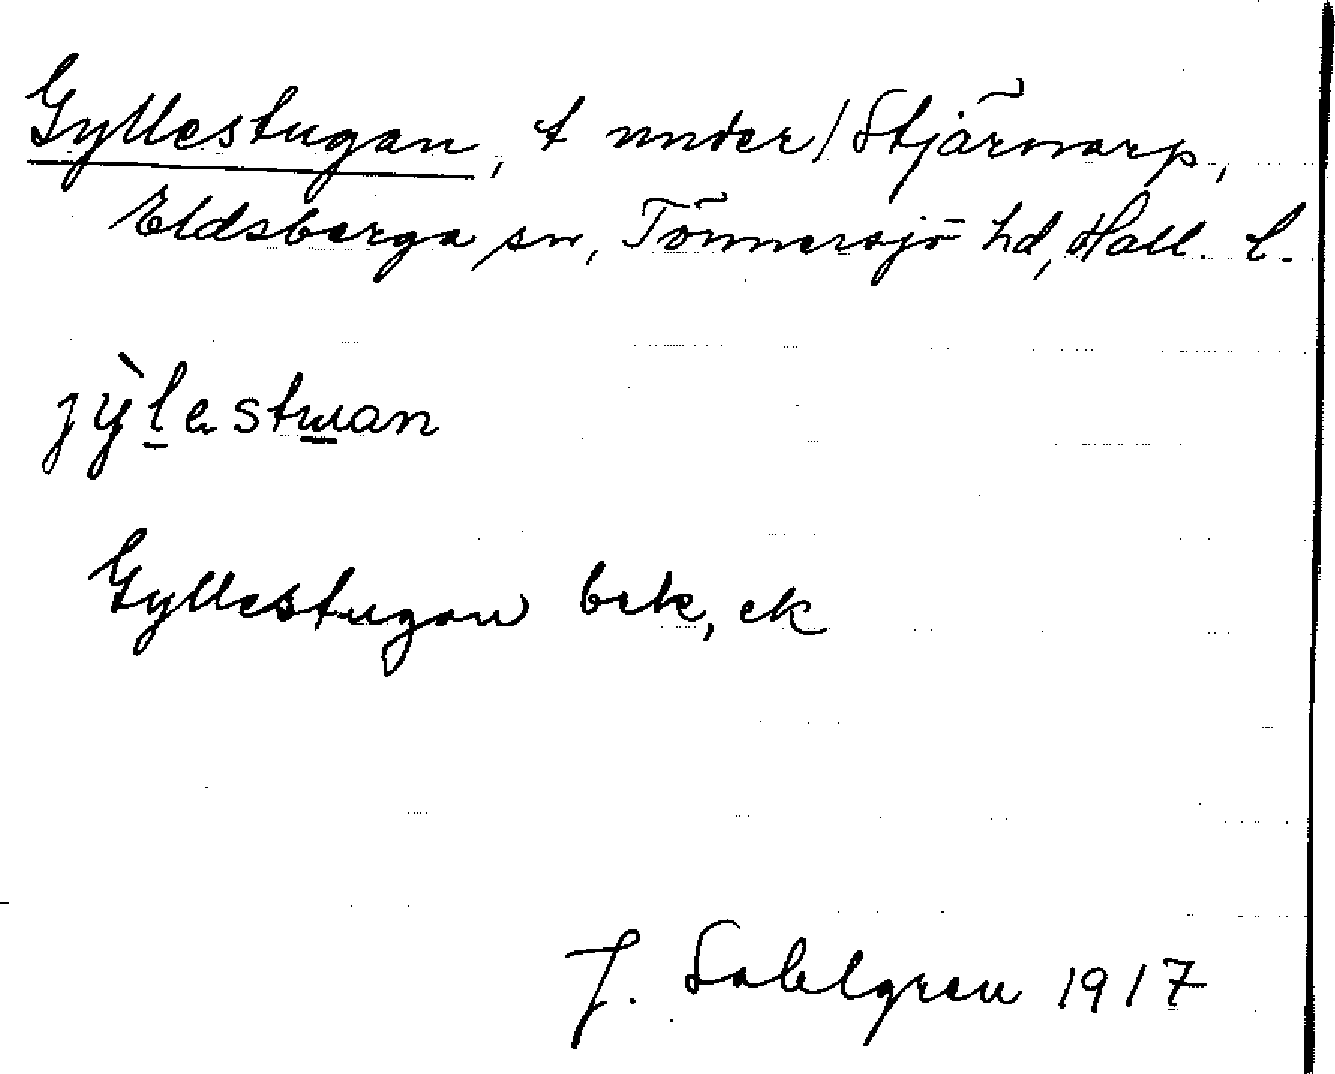 Gyllestugan, t under/Stjärnarp,
Eldsberga sn, Tönnersjö hd, Hall. l.
jỳlestɯan
Gyllestugan bek, ek
J. Sahlgren 1917